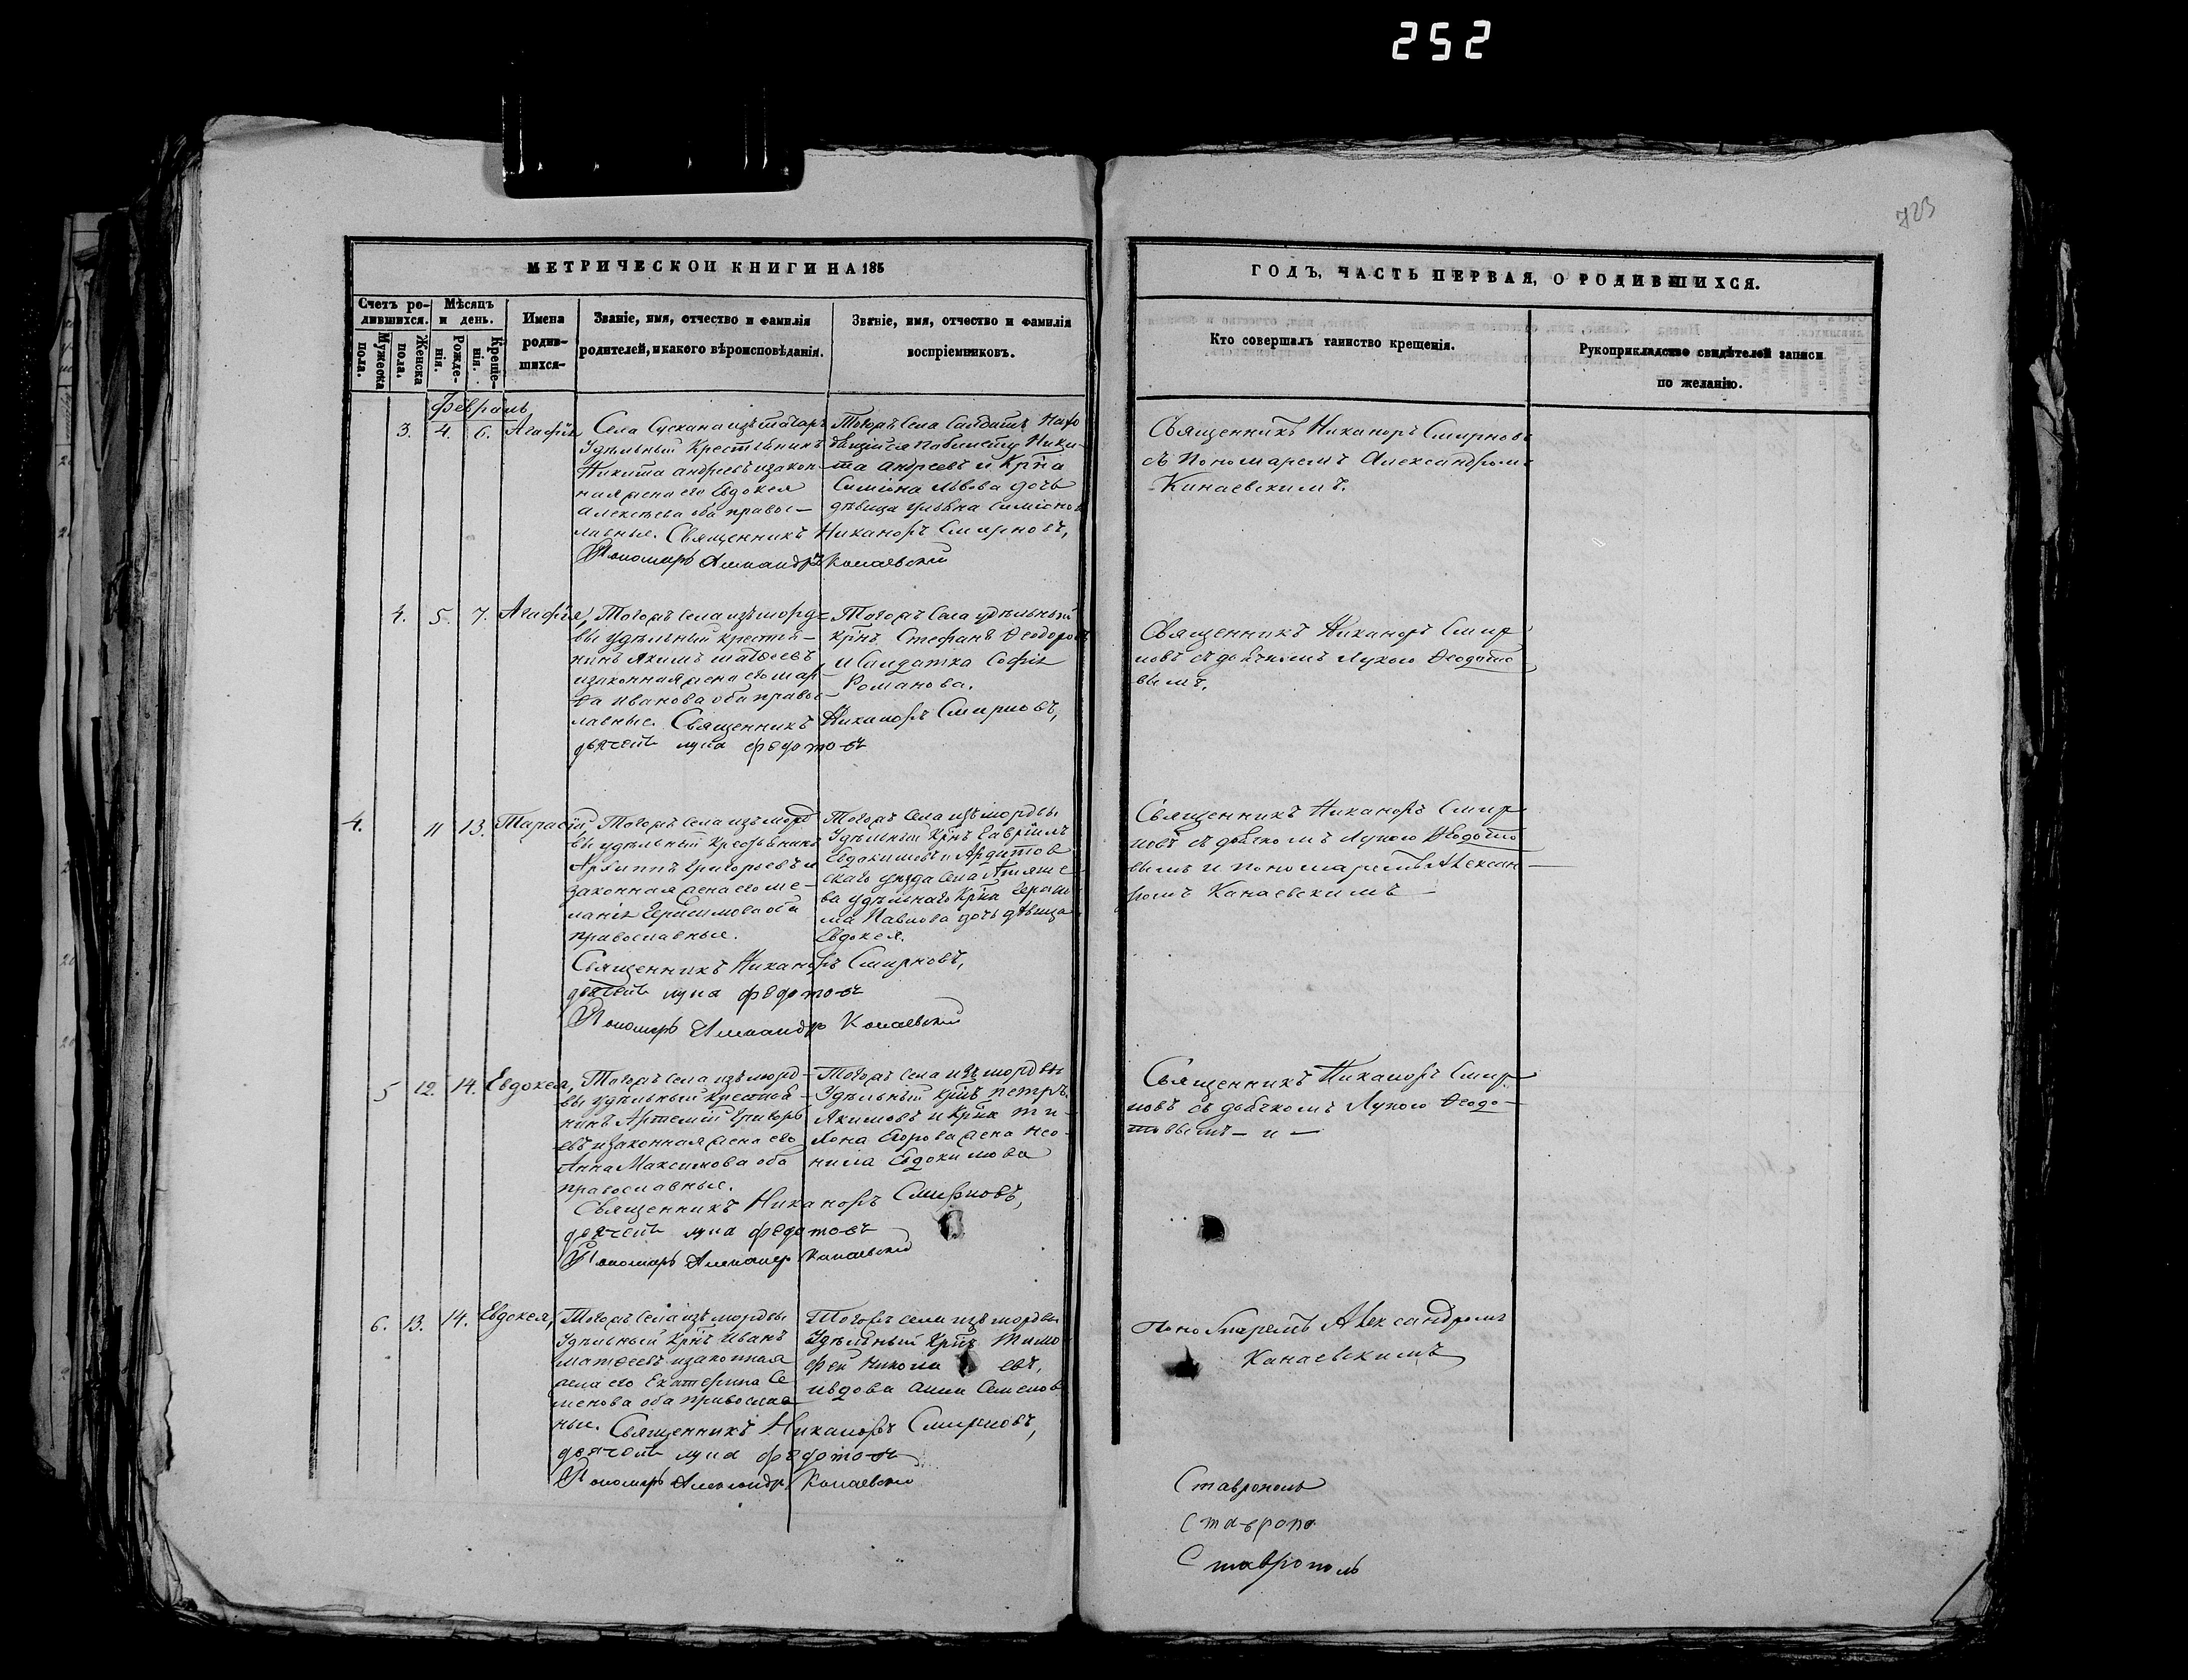 252
723
МЕТРИЧЕСКОЙ КНИГИ НА 185
ГОДЪ, ЧАСТЬ ПЕРВАЯ, О РОДИВШИХСЯ.
Счетъ ро-
дившихся.
Мужеска
пола.
Женска
пола.
Мѣсяцъ
и день.
Рожде-
нія.
Креще-
нія.
Имена
родив-
шихся-
Званіе, имя, отчество и фамилія
родителей, и какого вѣроисповѣданія.
Званіе, имя, отчество и фамилія
воспріемниковъ.
Кто совершалъ таинство крещенія.
Рукоприкладство свидѣтелей записи
по желанію.
Февраль
3. 4. 6. Агафія
Села Сускана изъ татаръ
Удѣльный Крестьянинъ
Никита Андреевъ и закон-
ная жена его Евдокея
Алексѣева оба правос-
лавные. Священникъ Никаноръ Смирновъ,
Пономарь Александръ Канаевскій
Тогожъ села
Ники-
та Андреевъ и Крна
Симіона Львова дочь
дѣвица Ульяна Симіонов
Священникъ Никаноръ Смирновъ
съ Пономаремъ Александромъ
Канаевскимъ.
4. 5. 7. Агафія,
Тогожъ села изъ морд-
вы удѣльный крестья-
нинъ Якимъ Матѳеевъ,
и законная жена его Мар-
ѳа Иванова оба правос-
лавные. Священникъ Никаноръ Смирновъ,
дьячекъ лука федотовъ
Тогожъ села удѣльный
крнъ Стефанъ Ѳеодоровъ
и Солдатка Софія
Романова.
Священникъ Никаноръ Смир
новъ съ дьячкомъ Лукою Ѳеодото
вымъ.
4. 11 13. Тарасій,
Тогожъ села изъ морд
вы удѣльный крестьянинъ
Архиппъ Григорьевъ и
законная жена его Ме-
ланія Герасимова оба
православные.
Священникъ Никаноръ Смирновъ,
дьячекъ лука федотовъ
Пономарь Александръ Канаевскій
Тогожъ села изъ мордвы
Удѣльный Крнъ Гавріилъ
Евдокимовъ и Ардатов
скаго уѣзда села Атяше
ва удѣльнаго Крна Гераси
ма Павлова дочь дѣвица
Евдокея.
Священникъ Никаноръ Смир
новъ съ дьячкомъ Лукою Ѳеодото
вымъ и пономаремъ Алексан
ромъ Канаевскимъ
5 12. 14. Евдокея,
Тогожъ села изъ морд-
вы удѣльный крестья-
нинъ Артемій Григорь
евъ и законная жена его
Анна Максимова оба
православные.
Священникъ Никаноръ Смирновъ,
дьячекъ лука федотовъ
Пономарь Александръ Канаевскій
Тогожъ села изъ мордвы
Удѣльный крнъ Петръ
Якимовъ и Крна
Егорова жена Нео-
нила Евдокимова
Священникъ Никаноръ Смир
новъ съ дьячкомъ Лукою Ѳеодо-
товымъ - и -
6. 13. 14. Евдокея,
Тогожъ села изъ мордвы
Удѣльный Крнъ Иванъ
Матѳеевъ и законная
жена его Екатерина Се
менова оба православ
ные. Священникъ Никаноръ Смирновъ,
дьячекъ лука федотовъ
Пономарь Александръ Канаевскій
Тогожъ села изъ мордвы
Удѣльный Крнъ Тимо
фей Никола евъ,
и вдова Анна Семенов
Пономаремъ Александромъ
Канаевскимъ
Ставрополь
Ставропо
Ставрополь